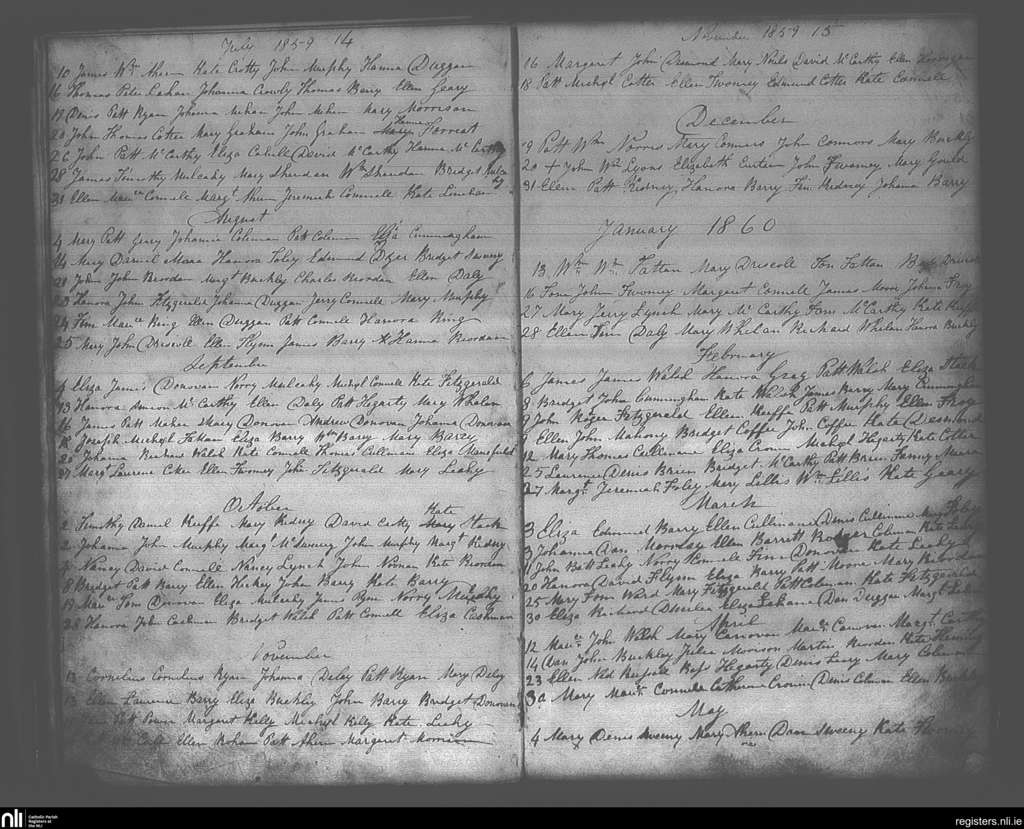 July 1859 14
10 James Wm Ahern Kate Crotty John Murphy Hanna Duggan
16 Thomas Peter Lahan Johanna Crowly Thomas Barry Ellen Geary
17 Denis Patt Ryan Johanna Mehan John Mehan Mary Morrison
20 John Thomas Cotter Mary Graham John Graham Hanna Forrest
26 John Patt McCarthy Eliza Cahill David McCarthy Hanna McCarthy
28 James Timothy Mulcahy Mary Sheridan Wm Sheridan Bridget Mulcahy
31 Ellen Maue Connele Margt Ahern Jeremiah Connele Kate Linehan
August
4 Mary Patt Geary Johanna Coleman Patt Coleman Eliza Cunningham
14 Mary Daniel Meara Hanora Foley Edmund Dyer Bridget Sweeny
21 John John Reordan Margt Buckley Charles Reordan Ellen Daly
23 Hanora John Fitzgerald Johanna Duggan Jerry Connele Mary Murphy
24 Tim Maue Ring Ellen Duggan Patt Connele Hanora Ring
25 Mary John Driscoll Ellen Flynn James Barry Hanna Reordan
September
4 Eliza James Donovan Norry Mulcahy Michael Connele Kate Fitzgerald
13 Hanora McCarthy Ellen Daly Patt Hegarty Mary Whelan
16 James Patt Meher Mary Donovan Andrew Donovan Johanna Donovan
18 Joseph Michael Fattan Eliza Barry Wm Barry Mary Barry
20 Johanna Richard Walsh Kate Connele Thomas Cullinan Eliza Mansfield
27 Margt Laurence Ellen Twomey John Fitzgerald Mary Leahy
October
2 Timothy Daniel Keeffe Mary Kidney David Kate Stack
2 Johanna John Murphy Margt McSweeny John Murphy Margt Kidney
4 Nancy David Connele Nancy Lynch John Noonan Kate Reordan
8 Bridget Patt Barry Ellen Hickey John Barry Kate Barry
19 Maue Tom Donovan Eliza Mulcahy James Ryan Norry Mulcahy
28 Hanora John Cashman Bridget Walsh Patt Connell Eliza Cashman
November
13 Cornelius Cornelius Ryan Johanna Delay Patt Ryan Mary Delay
Ellen Laurence Barry Eliza Buckley John Barry Bridget Donovan
Patt Power Margaret Kelly Michael Kelly Kate Leahy
Ellen Mohan Patt Ahern Margaret Morrison
November 1859 15
16 Margaret John Desmond Mary Neils David McCarthy Ellen
18 Patt Michael Cotter Ellen Twomey Edmund Cotter Kate Connele
December
19 Patt Wm Norris Mary Connors John Connors Mary Buckley
20 + John Wm Lyons Elizabeth John Twomey Mary Gould
31 Ellen Patt Kidney Hanora Barry Tim Kidney Johana Barry
January 1860
13 Wm Wm Fattan Mary Driscoll Tom Fattan Driscoll
16 Tom John Twomey Margaret Connell James Moore Johana
27 Mary Jerry Lynch Mary McCarthy Tom McCarthy Kate Keeffe
28 Ellen Tim Daly Mary Whelan Richard Whelan Hanora Buckley
February
6 James James Walsh Hanora Gray Patt Walsh Eliza Stack
8 Bridget John Cunningham Kate Walsh James Barry Mary Cunningham
9 John Roger Fitzgerald Ellen Keeffe Patt Murphy Ellen
9 Ellen John Mahony Bridget Coffee John Coffee Kate Desmond
12 Mary Thomas Cullinane Eliza Cronin Michael Hegarty Kate Cotter
25 Laurence Denis Brien Bridget McCarthy Patt Brien Fanny Meara
27 Margt Jeremiah Foley Mary Lillis Wm Lillis Kate Geary
March
3 Eliza Edmund Barry Ellen Cullinane Denis Cullinane Margt
3 Johanna Dan Ellen Barrett Roger Coleman Kate
11 John Batt Leahy Norry Connele Tim Donovan Kate Leahy
20 Hanora David Flynn Eliza Barry Patt Moore Mary Reordan
25 Mary Tom Ward Mary Fitzgerald Patt Coleman Kate Fitzgerald
30 Eliza Richard Eliza Dan Duggan Margt
April
12 Maue John Walsh Mary Canovan Maue Canovan Margt Carthy
14 Dan John Buckley Julia Morrison Martin Reordan Kate Fleming
23 Ellen Ned Russell Hegarty Denis Lucy Mary Coleman
30 Mary Maue Connele Catherine Cronin Denis Colman Ellen
May
4 Mary Denis Sweeny Mary Ahern Dan Sweeny Kate
nli
Catholic Parish
Registers at
the NLI
registers.nli.ie